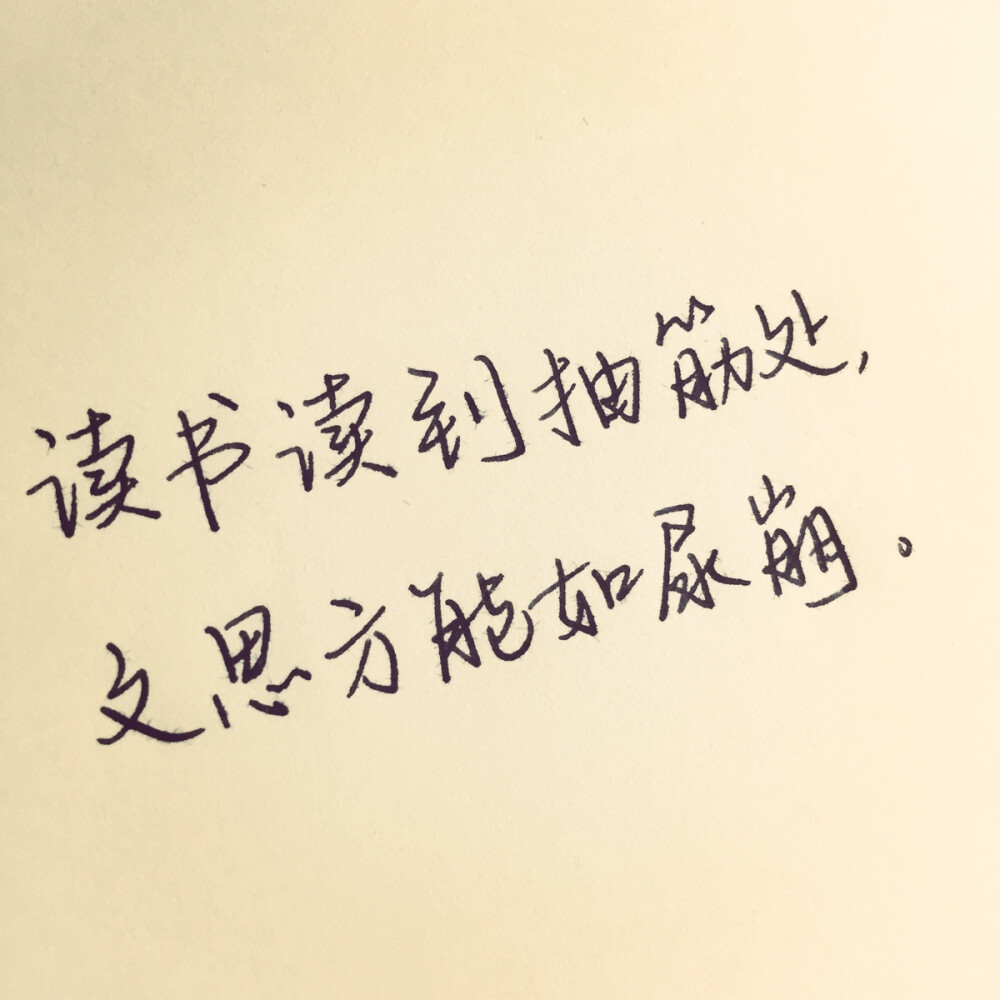 读书读到抽筋处,
文思方能如尿崩。